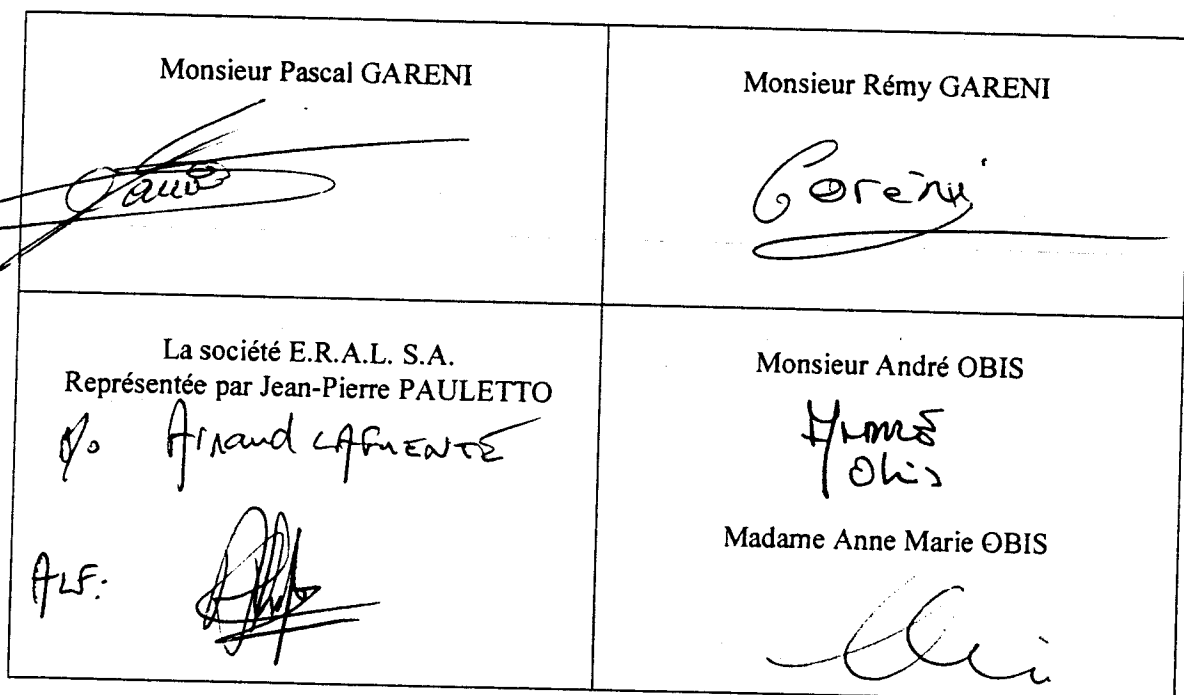 Monsieur Pascal GARENI
Monsieur Rémy GARENI
Gareni
La société E.R.A.L. S.A.
Représentée par Jean-Pierre PAULETTO
P/o Arnaud LAFUENTE
ALF:
Monsieur André OBIS
André
Obis
Madame Anne Marie OBIS